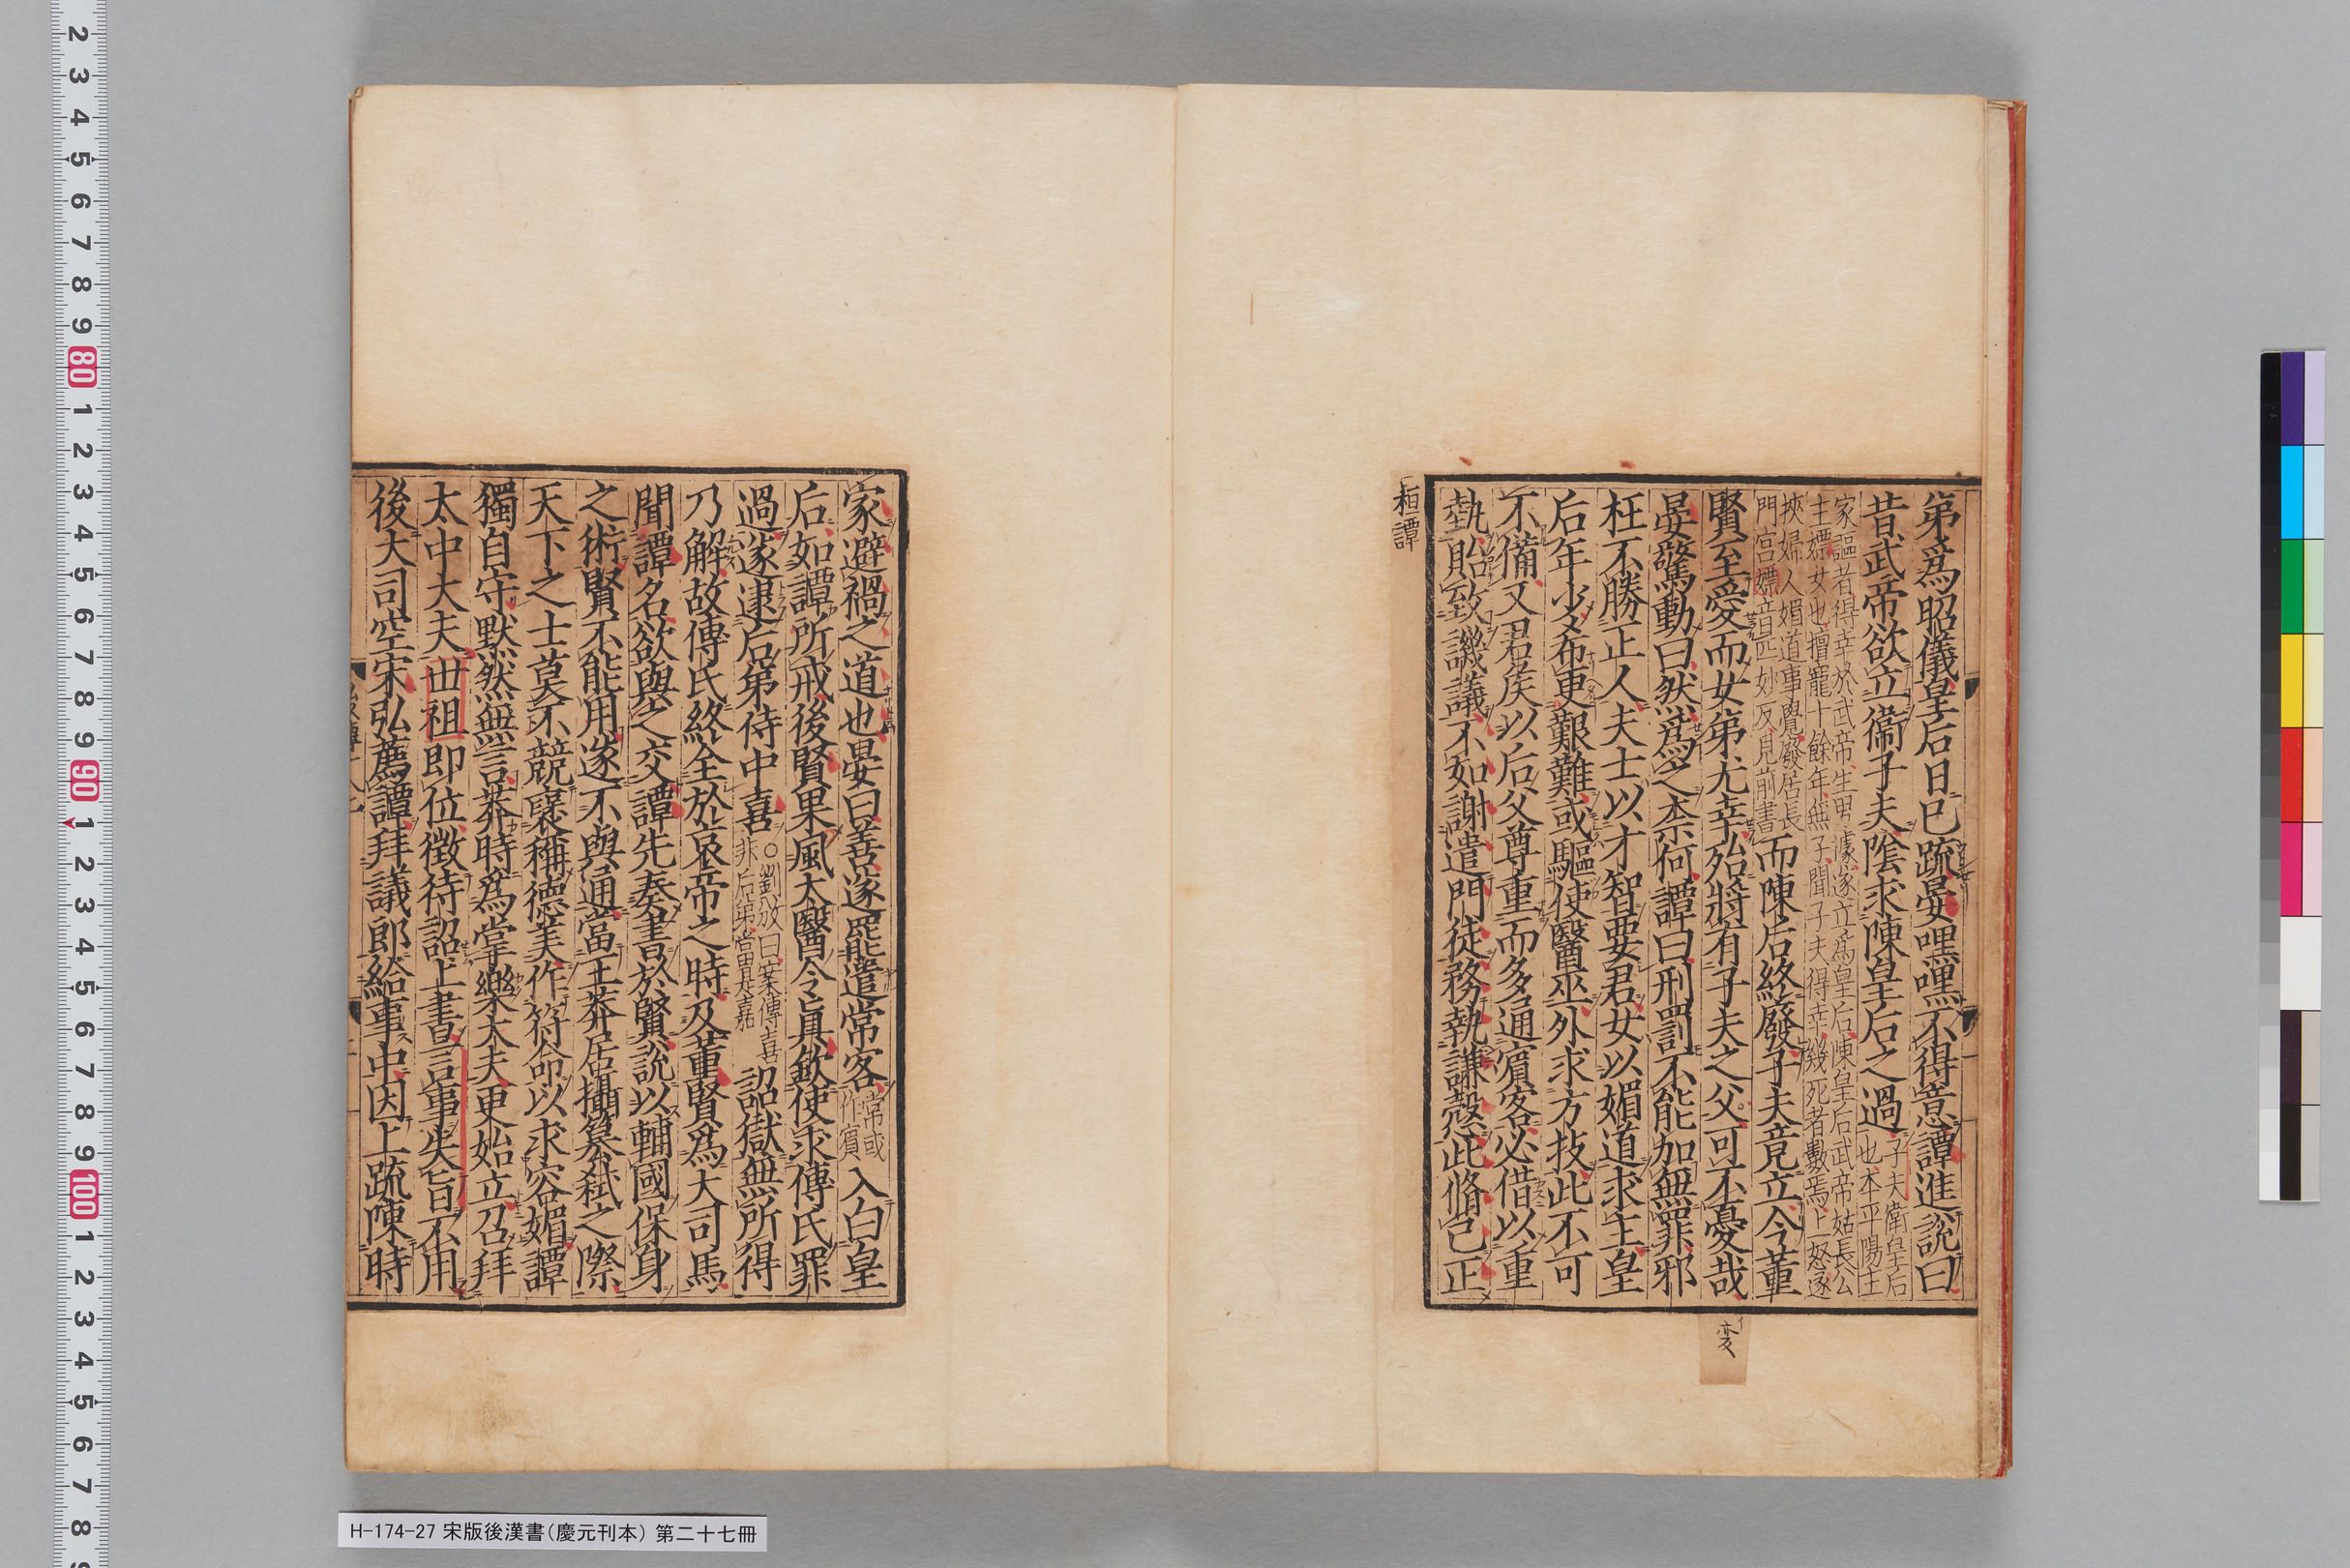 弟爲昭儀皇后日已疏晏嘿嘿不得意譚進說曰
昔武帝欲立衞子夫陰求陳皇后之過子夫衛皇后也本平陽主
家謳者得幸於武帝生男據遂立爲皇后陳皇后武帝姑長公
主嫖女也擅寵十餘年無子聞子夫得幸幾死者數焉上怒遂
挾婦人媚道事覺廢居長
門宮嫖音匹妙反見前書而陳后終廢子夫竟立今董
賢至愛而女弟尤幸殆將有子夫之父可不憂哉
晏驚動曰然爲之柰何譚曰刑罰不能加無罪邪
枉不勝正人夫士以才智要君女以媚道求主皇
后年少希更艱難或驅使醫巫外求方技此不可
不備又君矦以后父尊重而多通賓客必借以重
埶貽致譏議不如謝遣門徒務執謙愨此脩己正
桓譚
变
家避禍之道也晏曰善遂罷遣常客常或作賓入白皇
后如譚所戒後賢果風太醫令眞欽使求傅氏罪
過遂逮后弟侍中喜○劉攽曰案傅喜非后弟當是嘉詔獄無所得
乃解故傅氏終全於哀帝之時及董賢爲大司馬
聞譚名欲與之交譚先奏書於賢說以輔國保身
之術賢不能用遂不與通當王莽居攝簒弒之際
天下之士莫不競襃稱德美作符命以求容媚譚
獨自守默然無言莽時爲掌樂大夫更始立召拜
太中大夫世祖即位徵待詔上書言事失旨不用
後大司空宋弘薦譚拜議郎給事中因上疏陳時
H-174-27 宋版後漢書(慶元刊本) 第二十七冊
2
3
4
5
6
7
8
9
80
1
2
3
4
5
6
7
8
9
90
1
2
3
4
5
6
7
8
9
100
1
2
3
4
5
6
7
8